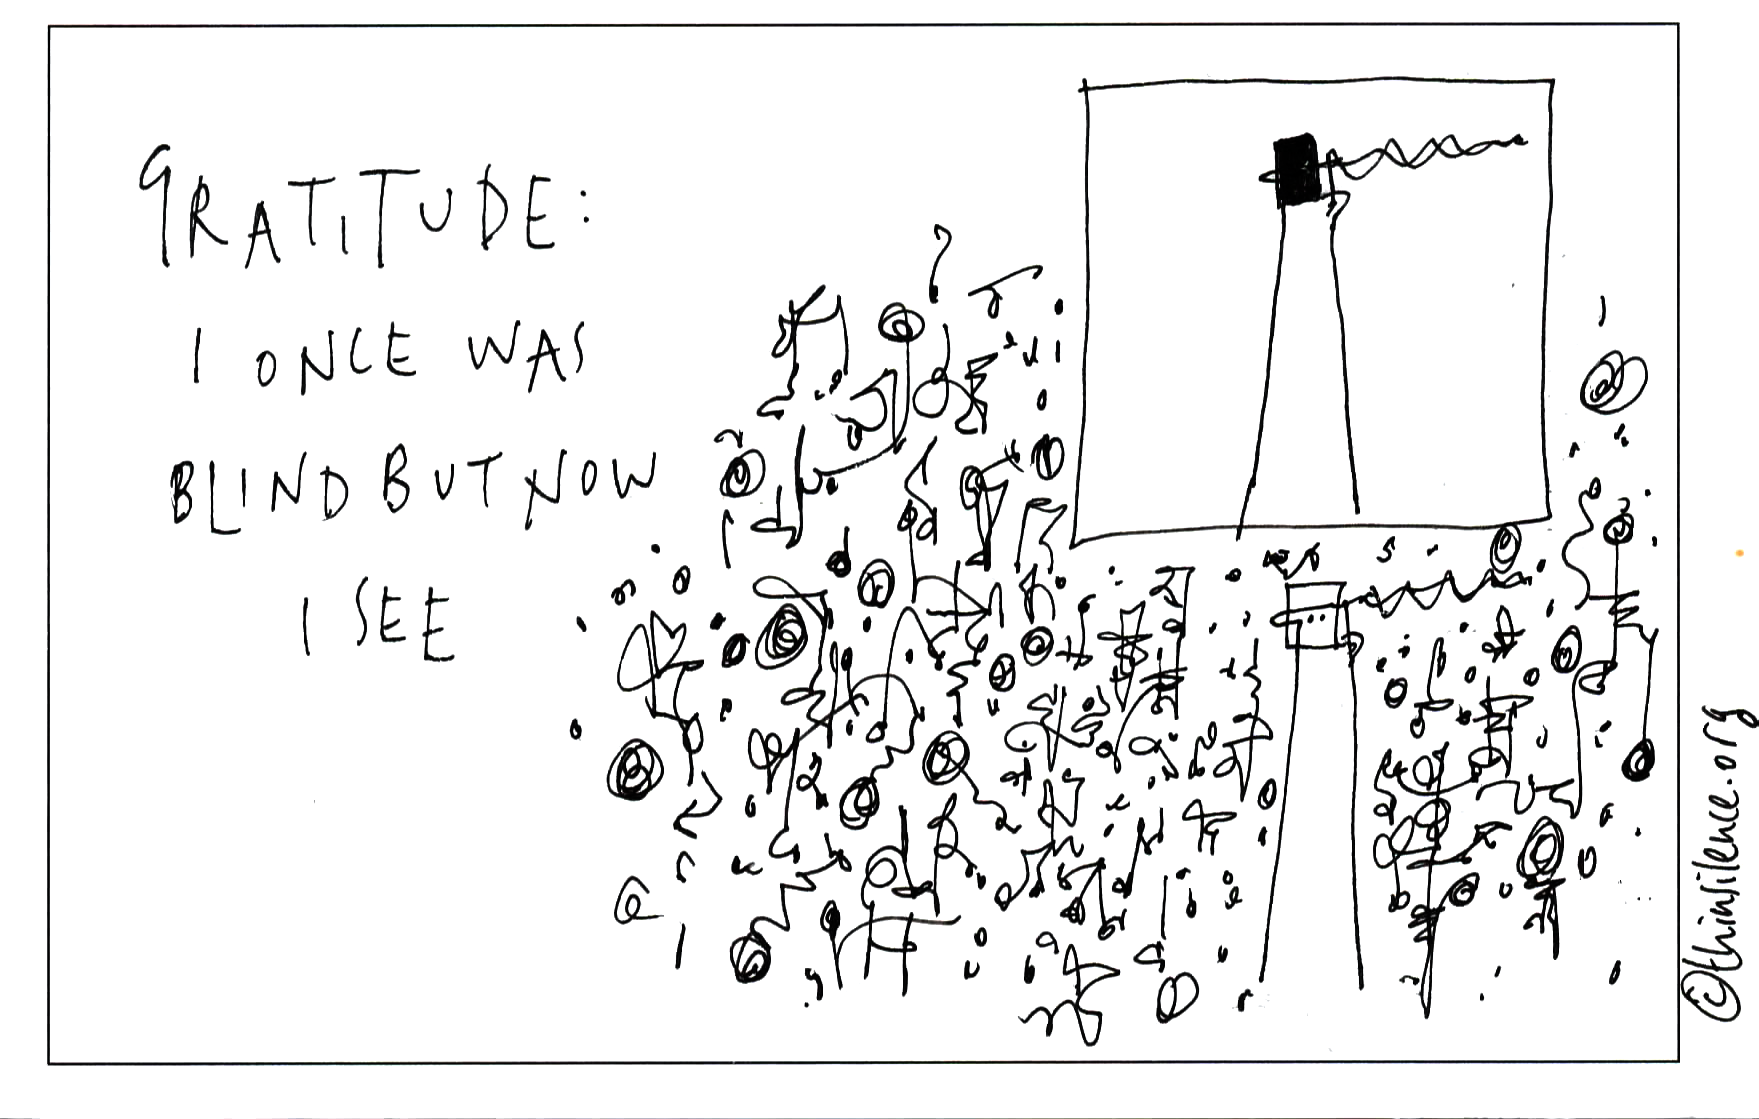 GRATITUDE:
I ONCE WAS
BLIND BUT NOW
I SEE
©thinsilence.org